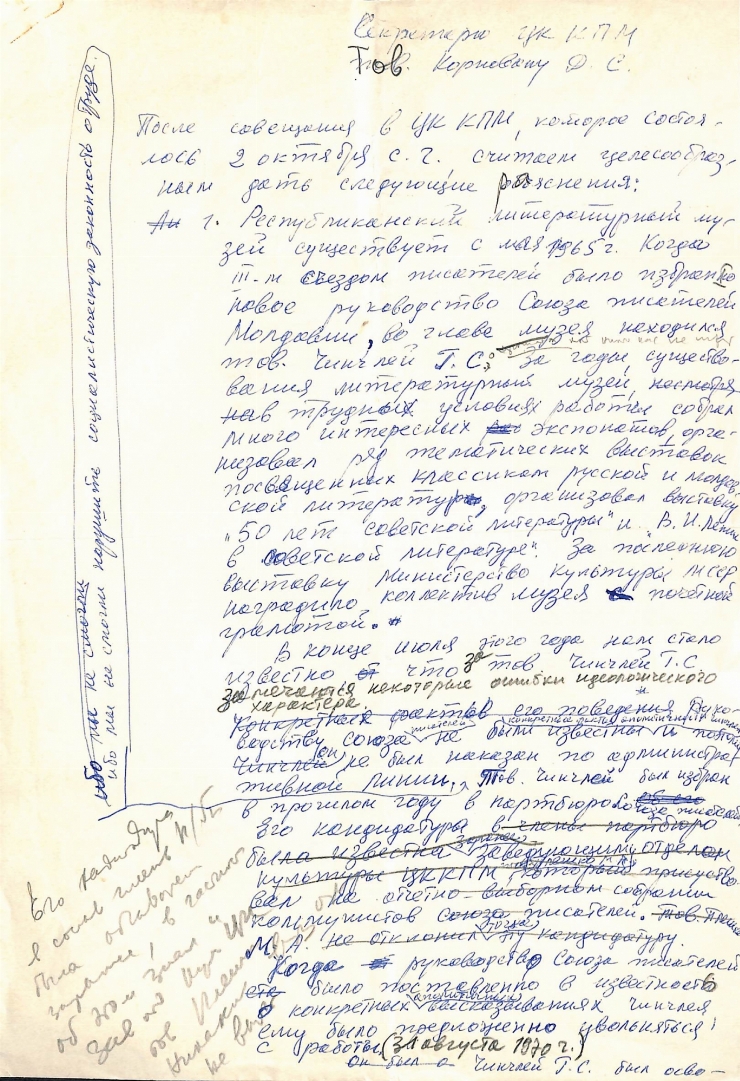 Секретарю ЦК КПМ
Тов. Корновану Д. С.
После совещания в ЦК КПМ, которое состоя-
лось 2 октября с. г. считаем целесообраз-
ным дать следующие разъяснения:
1. Республиканский литературный му-
зей существует с мая 1965 г. Когда
III-м съездом писателей было избрано
новое руководство Союза писателей
Молдавии, во главе музея находился
тов. Чинчлей Г. С. За годы существо-
вания литературный музей, несмотря
на трудные условия работы собрал
много интересных экспонатов, орга-
низовал ряд тематических выставок
посвященных классикам русской и молдав-
ской литературы, организовал выставку
„50 лет советской литературы" и „В. И. Ленин
в советской литературе". За последнюю
выставку Министерство культуры МССР
наградило коллектив музея почетной
грамотой.
В конце июля этого года нам стало
известно что за тов. Чинчлей Г. С
замечаются некоторые ошибки идеологического
характера
Конкретных фактов его поведения Руко-
водству Союза писателей не были известны и поэтому
Чинчлей он не был наказан по администра-
тивной линии. Тов. Чинчлей был избран
в прошлом году в партбюро Союза писателей
Его кандидатура в члены партбюро
была известна заранее заведующим отделом
культуры ЦК КПМ который присутство-
вал на отчетно-выборном собрании
коммунистов Союза писателей.
М. А. не отклонил тогда эту кандидатуру.
Когда руководство Союза писателей
было поставлено в известность
о конкретных высказываниях Чинчлея
ему было предложено увольняться
с работы (31 августа 1970 г.)
он был а Чинчлей Г. С. был осво-
ибо мы не смогли
ибо мы не смогли нарушить социалистическую законность о труде.
Его кандидатура
была
заранее, в частности
об этом знал и
зав. отд. культ. ЦК
тов.